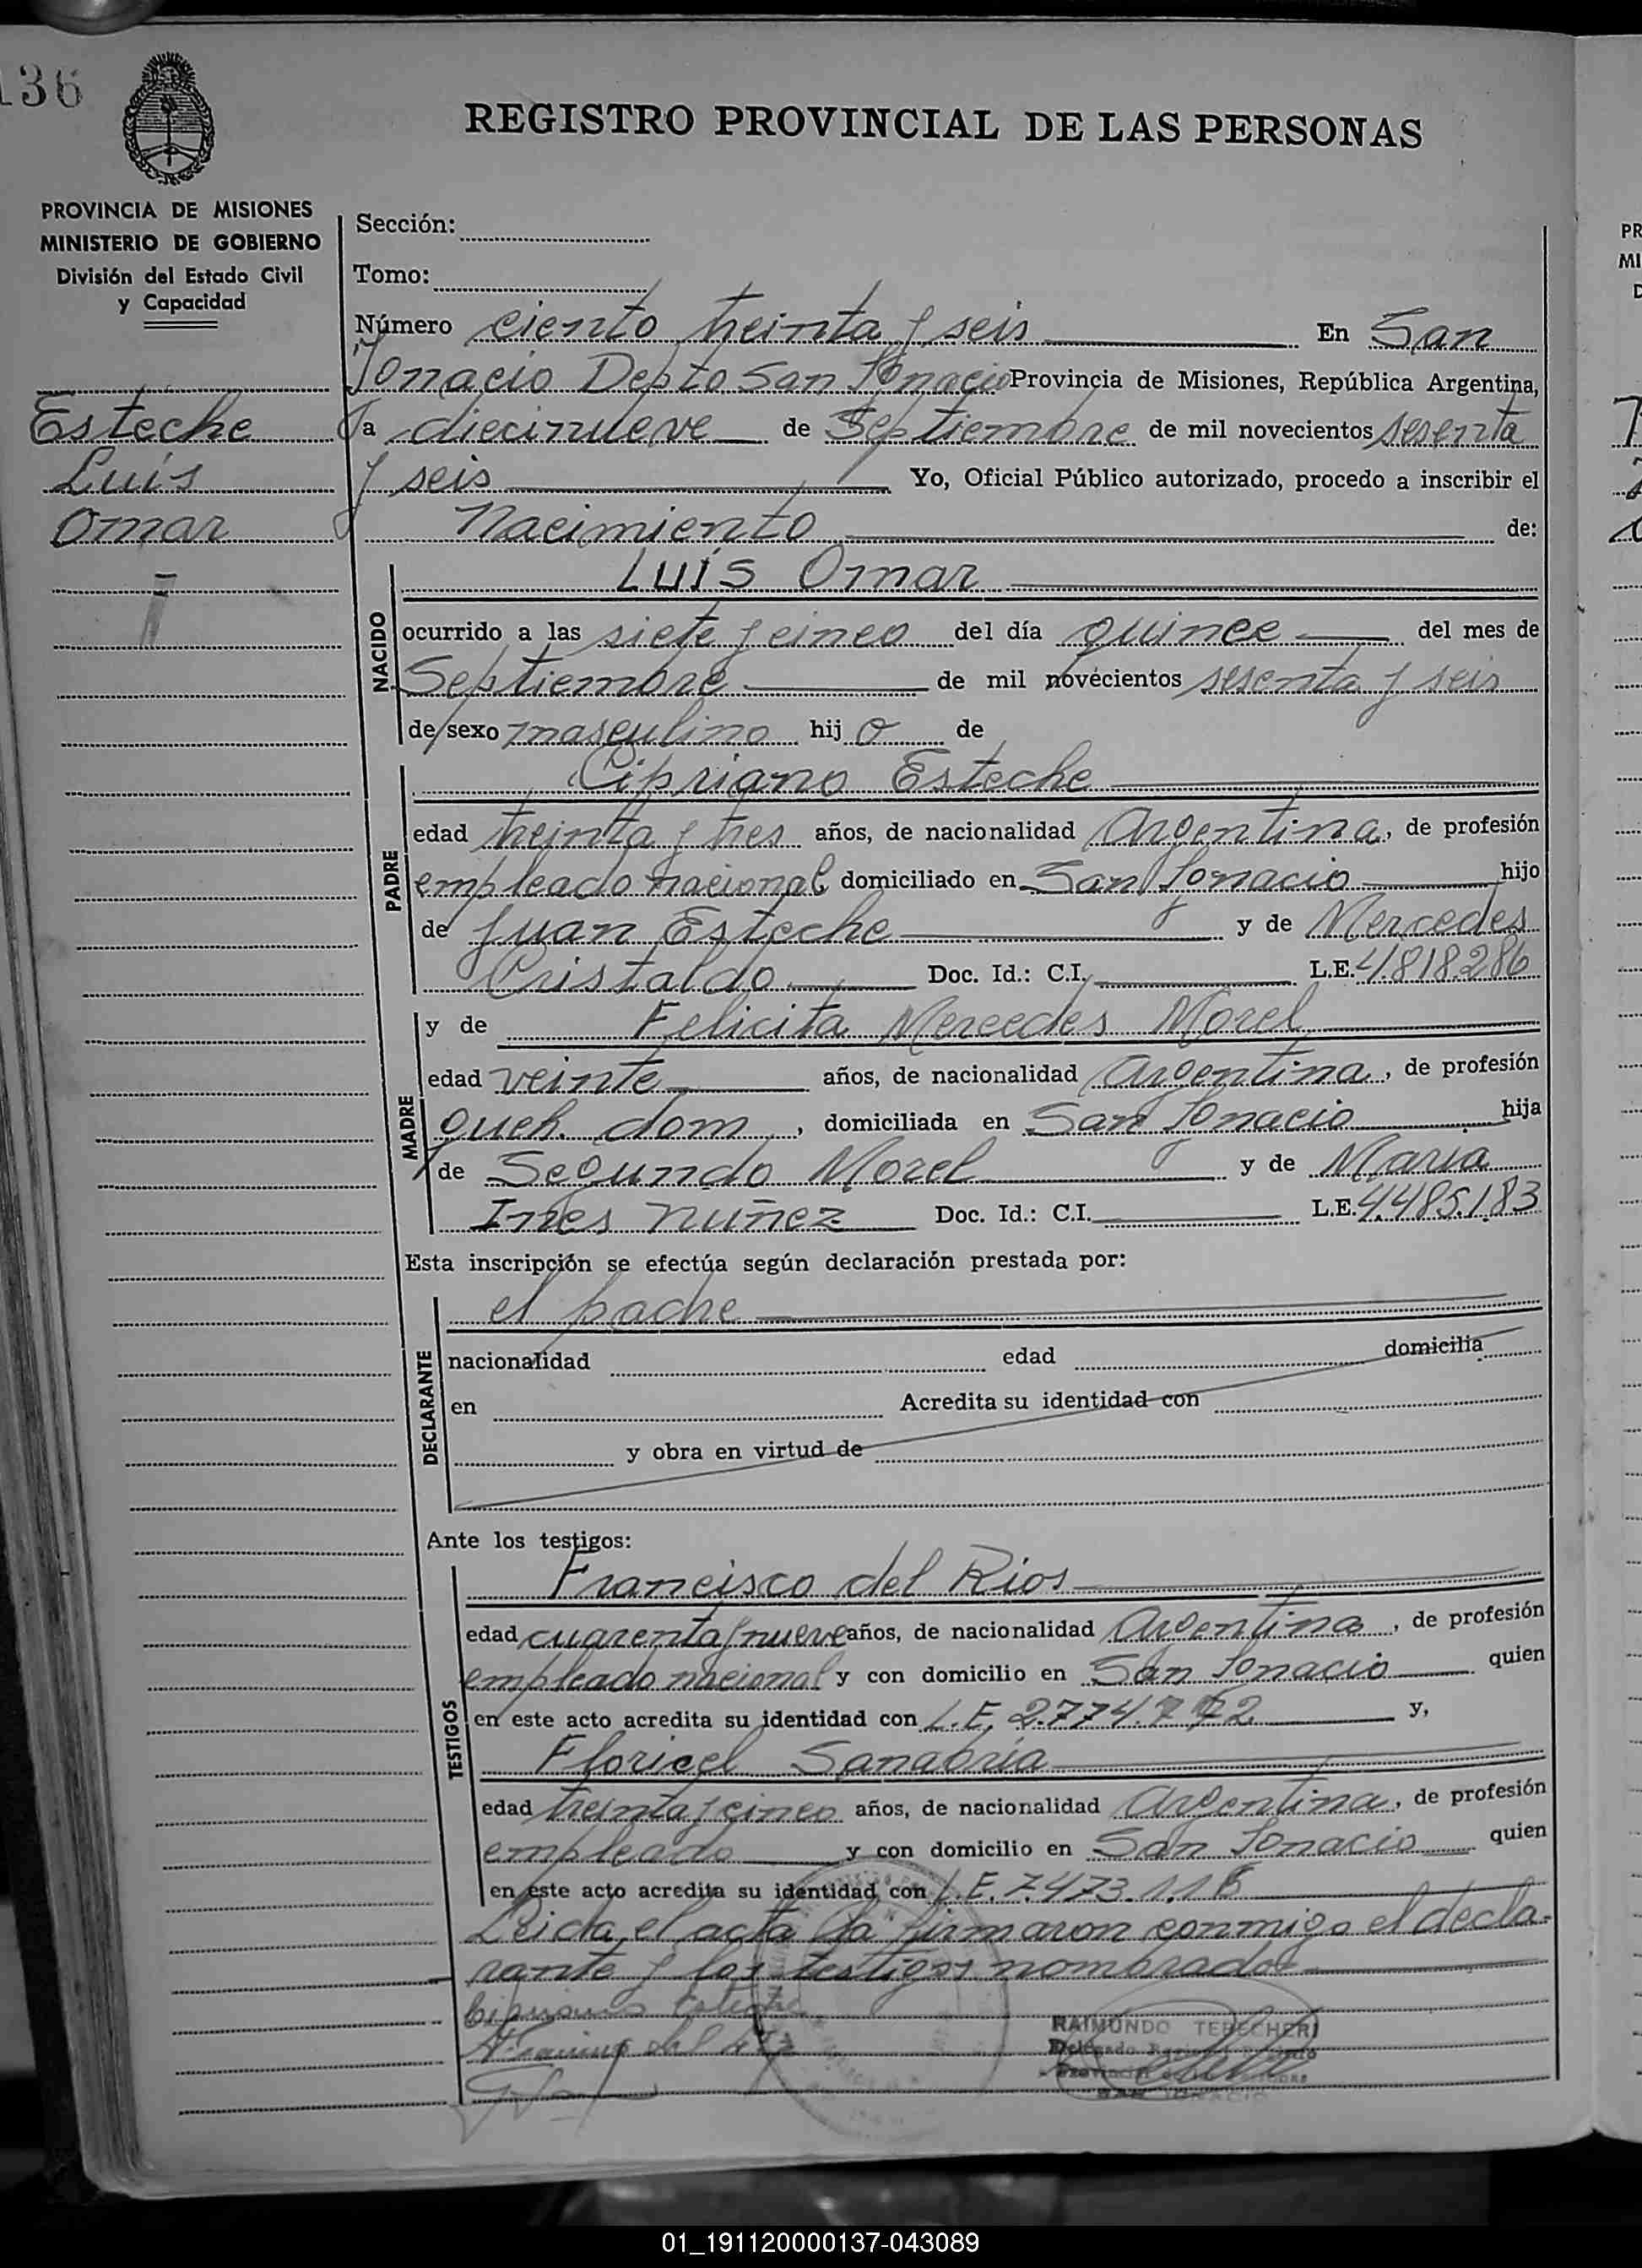 136
REGISTRO PROVINCIAL DE LAS PERSONAS
PROVINCIA DE MISIONES
MINISTERIO DE GOBIERNO
División del Estado Civil
y Capacidad
Esteche
Luis
Omar
Sección:
Tomo:
Número ciento treinta y seis En San
Ignacio Depto San Ignacio Provincia de Misiones, República Argentina,
a diecinueve de Septiembre de mil novecientos sesenta
y seis Yo, Oficial Público autorizado, procedo a inscribir el
Nacimiento de:
NACIDO
Luis Omar
ocurrido a las siete y cinco del día quince del mes de
Septiembre de mil novecientos sesenta y seis
de sexo masculino hij o de
PADRE
Cipriano Esteche
edad treinta y tres años, de nacionalidad Argentina, de profesión
empleado nacional domiciliado en San Ignacio hijo
de Juan Esteche y de Mercedes
Cristaldo Doc. Id.: C.I. L.E. 4.818.286
MADRE
y de Felicita Mercedes Morel
edad veinte años, de nacionalidad Argentina, de profesión
queh. dom, domiciliada en San Ignacio hija
de Segundo Morel y de Maria
Ines Nuñez Doc. Id.: C.I. L.E. 4.485.183
Esta inscripción se efectúa según declaración prestada por:
DECLARANTE
el padre
nacionalidad edad domicilia
en Acredita su identidad con
y obra en virtud de
Ante los testigos:
TESTIGOS
Francisco del Rios
edad cuarenta y nueve años, de nacionalidad Argentina, de profesión
empleado nacional y con domicilio en San Ignacio quien
en este acto acredita su identidad con L.E. y,
Floricel Sanabria
edad treinta y cinco años, de nacionalidad Argentina, de profesión
empleado y con domicilio en San Ignacio quien
en este acto acredita su identidad con L.E. 7.473.11
Leida el acta la firmaron conmigo el decla-
rante y los testigos nombrados
Cipriano Esteche
RAIMUNDO TEBECHERI
Delegado
SAN IGNACIO
PR
MI
D
01_191120000137-043089